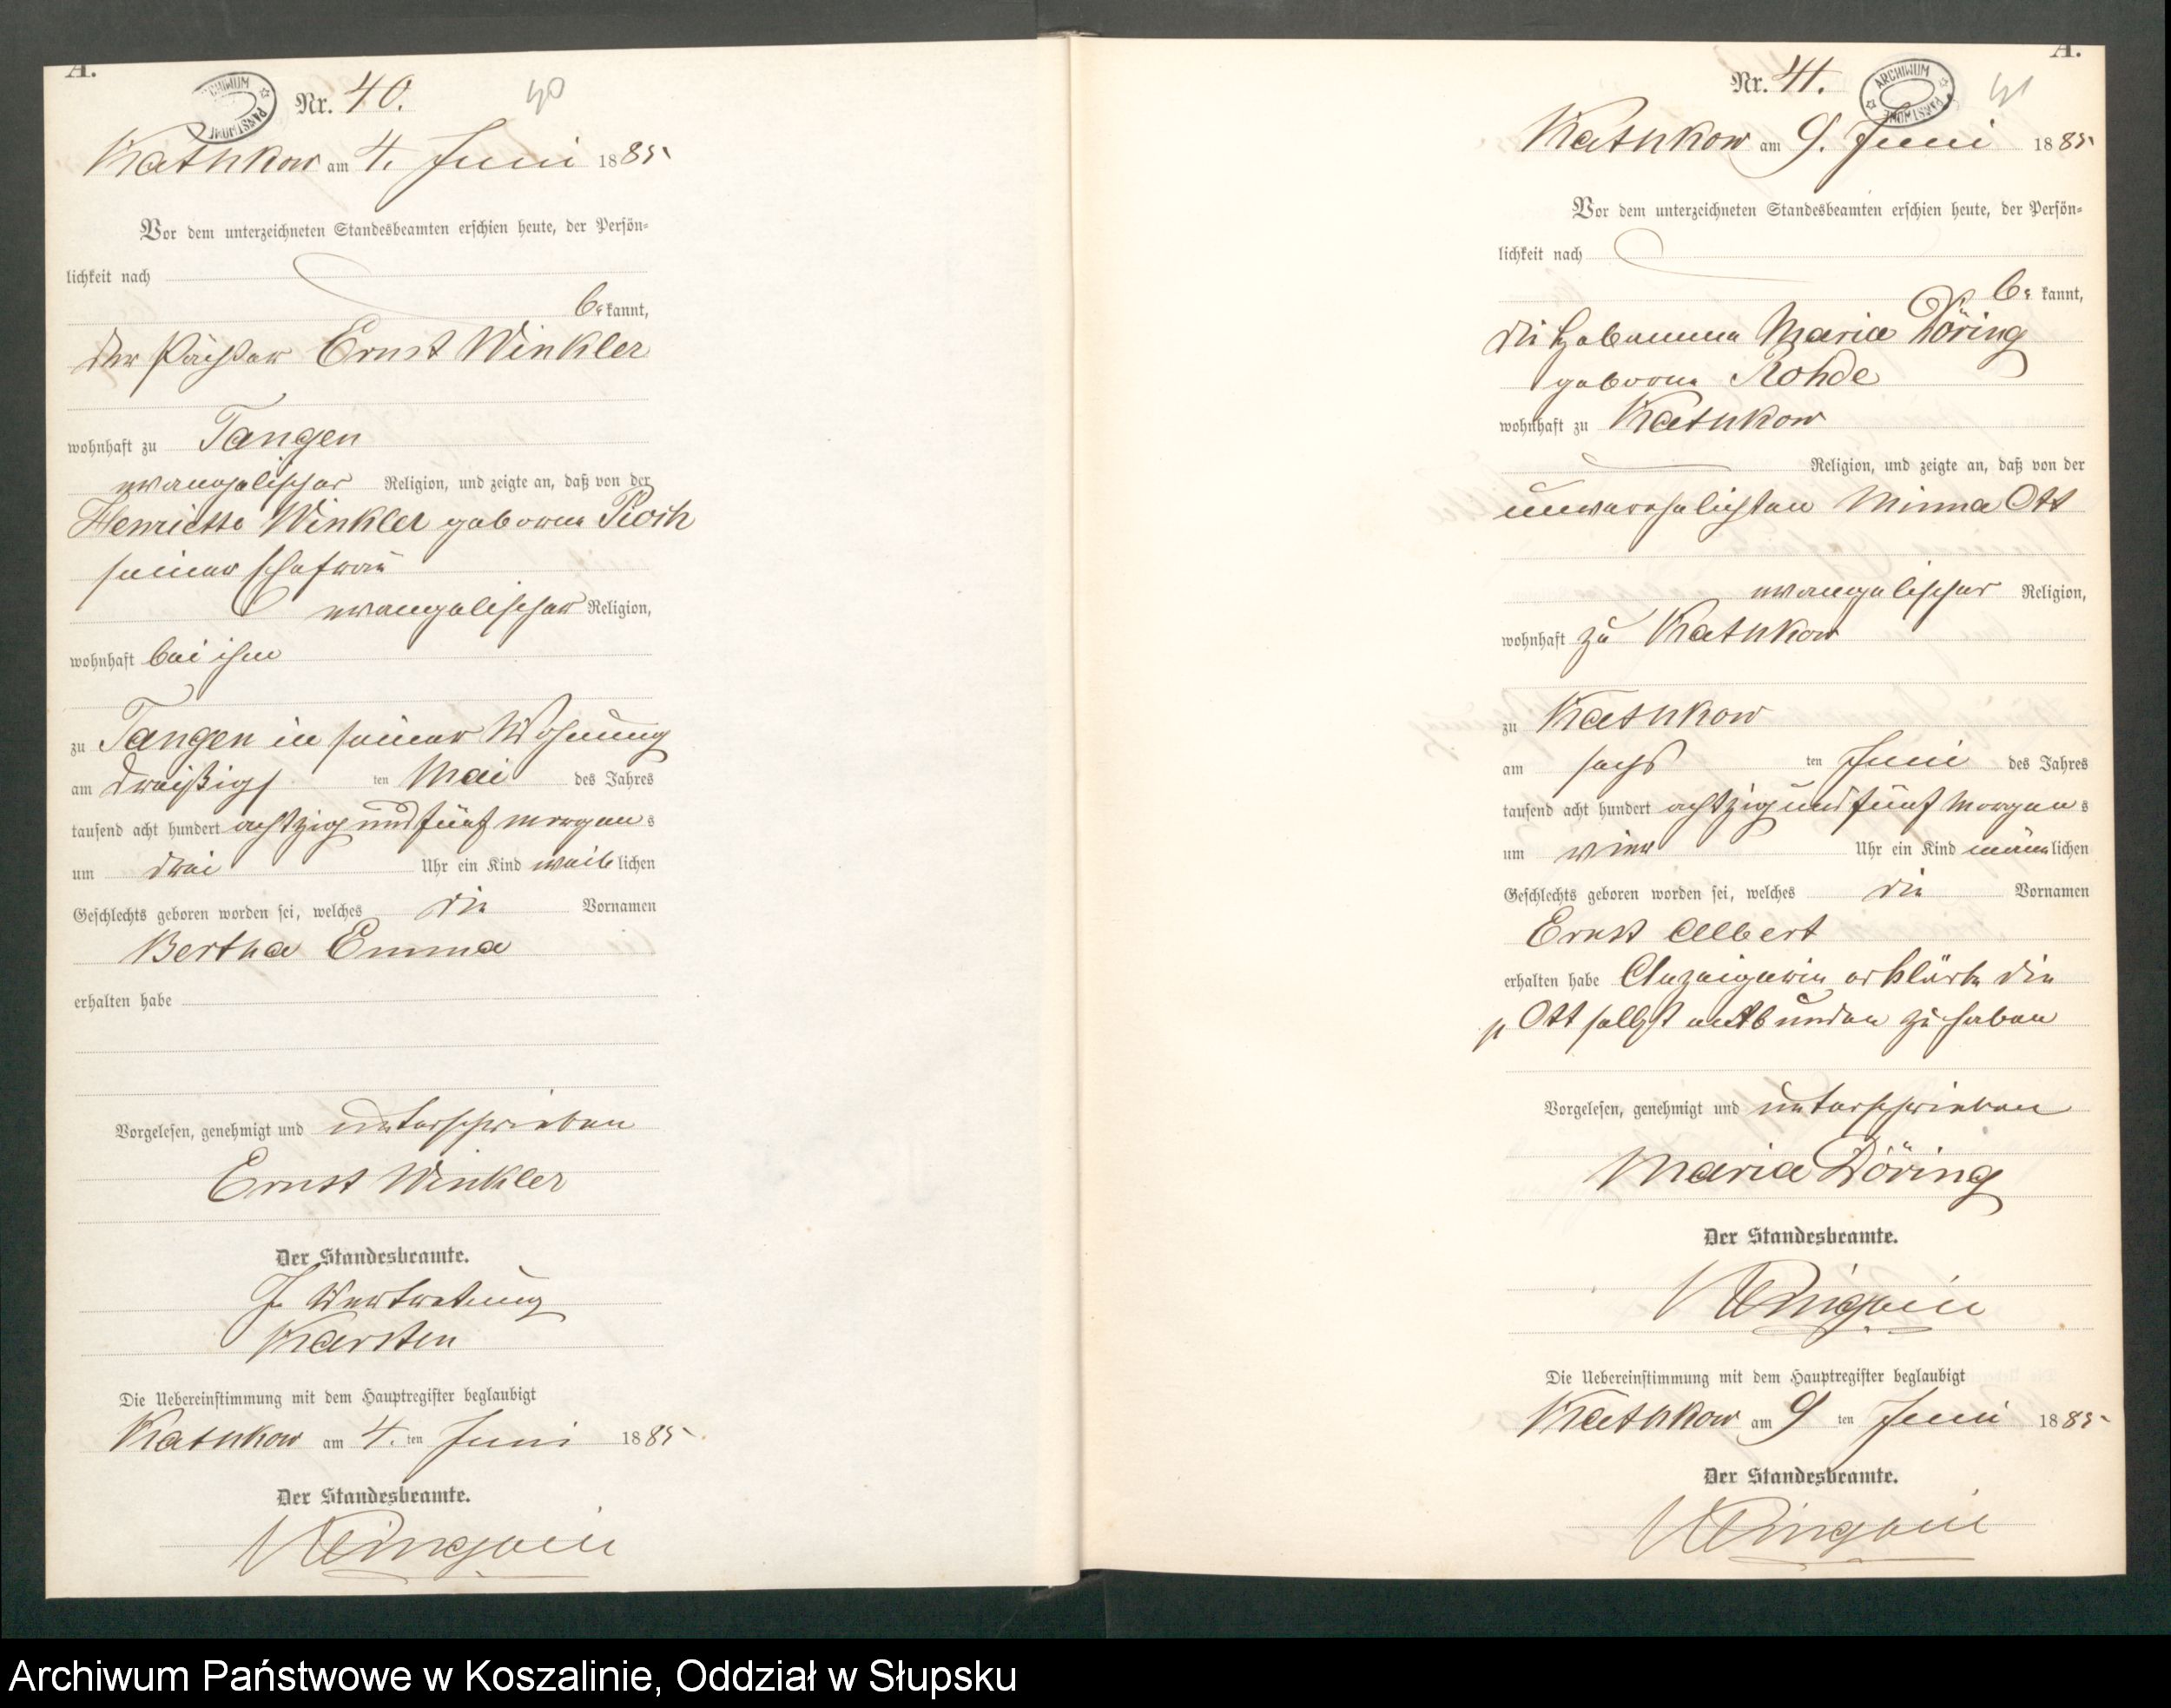 A.
ARCHIWUM PAŃSTWOWE
Nr. 40.
40
Kathkow am 4. Juni 1885
Vor dem unterzeichneten Standesbeamten erschien heute, der Persön-
lichkeit nach
be kannt,
der Pächter Ernst Winkler
wohnhaft zu Tangen
evangelischer Religion, und zeigte an, daß von der
Henriette Winkler geborene Pioch
seiner Ehefrau
evangelischer Religion,
wohnhaft bei ihm
zu Tangen in seiner Wohnung
am dreißigs ten Mai des Jahres
tausend acht hundert achtzig und fünf morgens
um drei Uhr ein Kind weiblichen
Geschlechts geboren worden sei, welches die Vornamen
Bertha Emma
erhalten habe
Vorgelesen, genehmigt und unterschrieben
Ernst Winkler
Der Standesbeamte.
In Vertretung
Karsten
Die Uebereinstimmung mit dem Hauptregister beglaubigt
Kathkow am 4. ten Juni 1885
Der Standesbeamte.
A.
Nr. 41.
ARCHIWUM PAŃSTWOWE
41
Kathkow am 9. Juni 1885
Vor dem unterzeichneten Standesbeamten erschien heute, der Persön-
lichkeit nach
be kannt,
die Hebamme Maria Döring
geborene Rohde
wohnhaft zu Kathkow
Religion, und zeigte an, daß von der
unverehelichten Minna Ott
evangelischer Religion,
wohnhaft zu Kathkow
zu Kathkow
am sechs ten Juni des Jahres
tausend acht hundert achtzig und fünf morgens
um vier Uhr ein Kind männlichen
Geschlechts geboren worden sei, welches die Vornamen
Ernst Albert
erhalten habe Anzeigerin erklärte die
p Ott selbst entbunden zu haben
Vorgelesen, genehmigt und unterschrieben
Maria Döring
Der Standesbeamte.
Die Uebereinstimmung mit dem Hauptregister beglaubigt
Kathkow am 9 ten Juni 1885
Der Standesbeamte.
Archiwum Państwowe w Koszalinie, Oddział w Słupsku